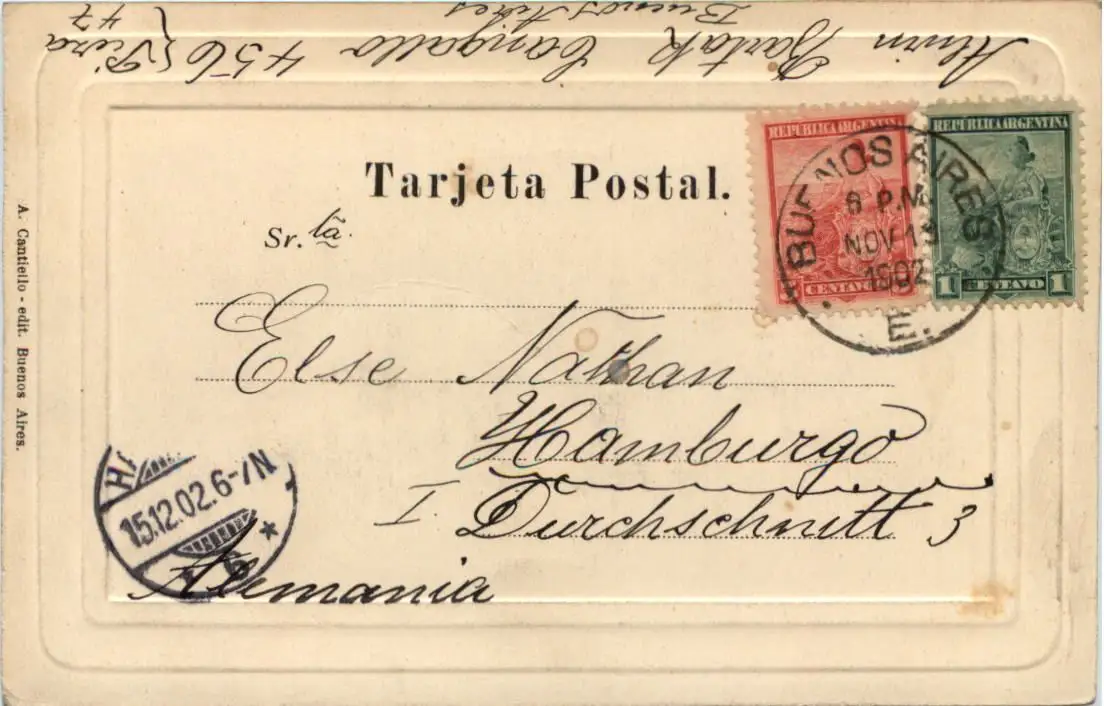 Buenos Aires
Alwin Bartok Cangallo 456 (Piza
47
REPUBLICA ARGENTINA
CENTAVOS
REPUBLICA ARGENTINA
1 CENTAVO 1
BUENOS AIRES
6 P.M.
NOV 13
1902
E.
Tarjeta Postal.
Sr.ta.
Else Nathan
Hamburgo
I. Durchschnitt 3
Alemania
15.12.02.6-7N
A. Cantiello - edit. Buenos Aires.